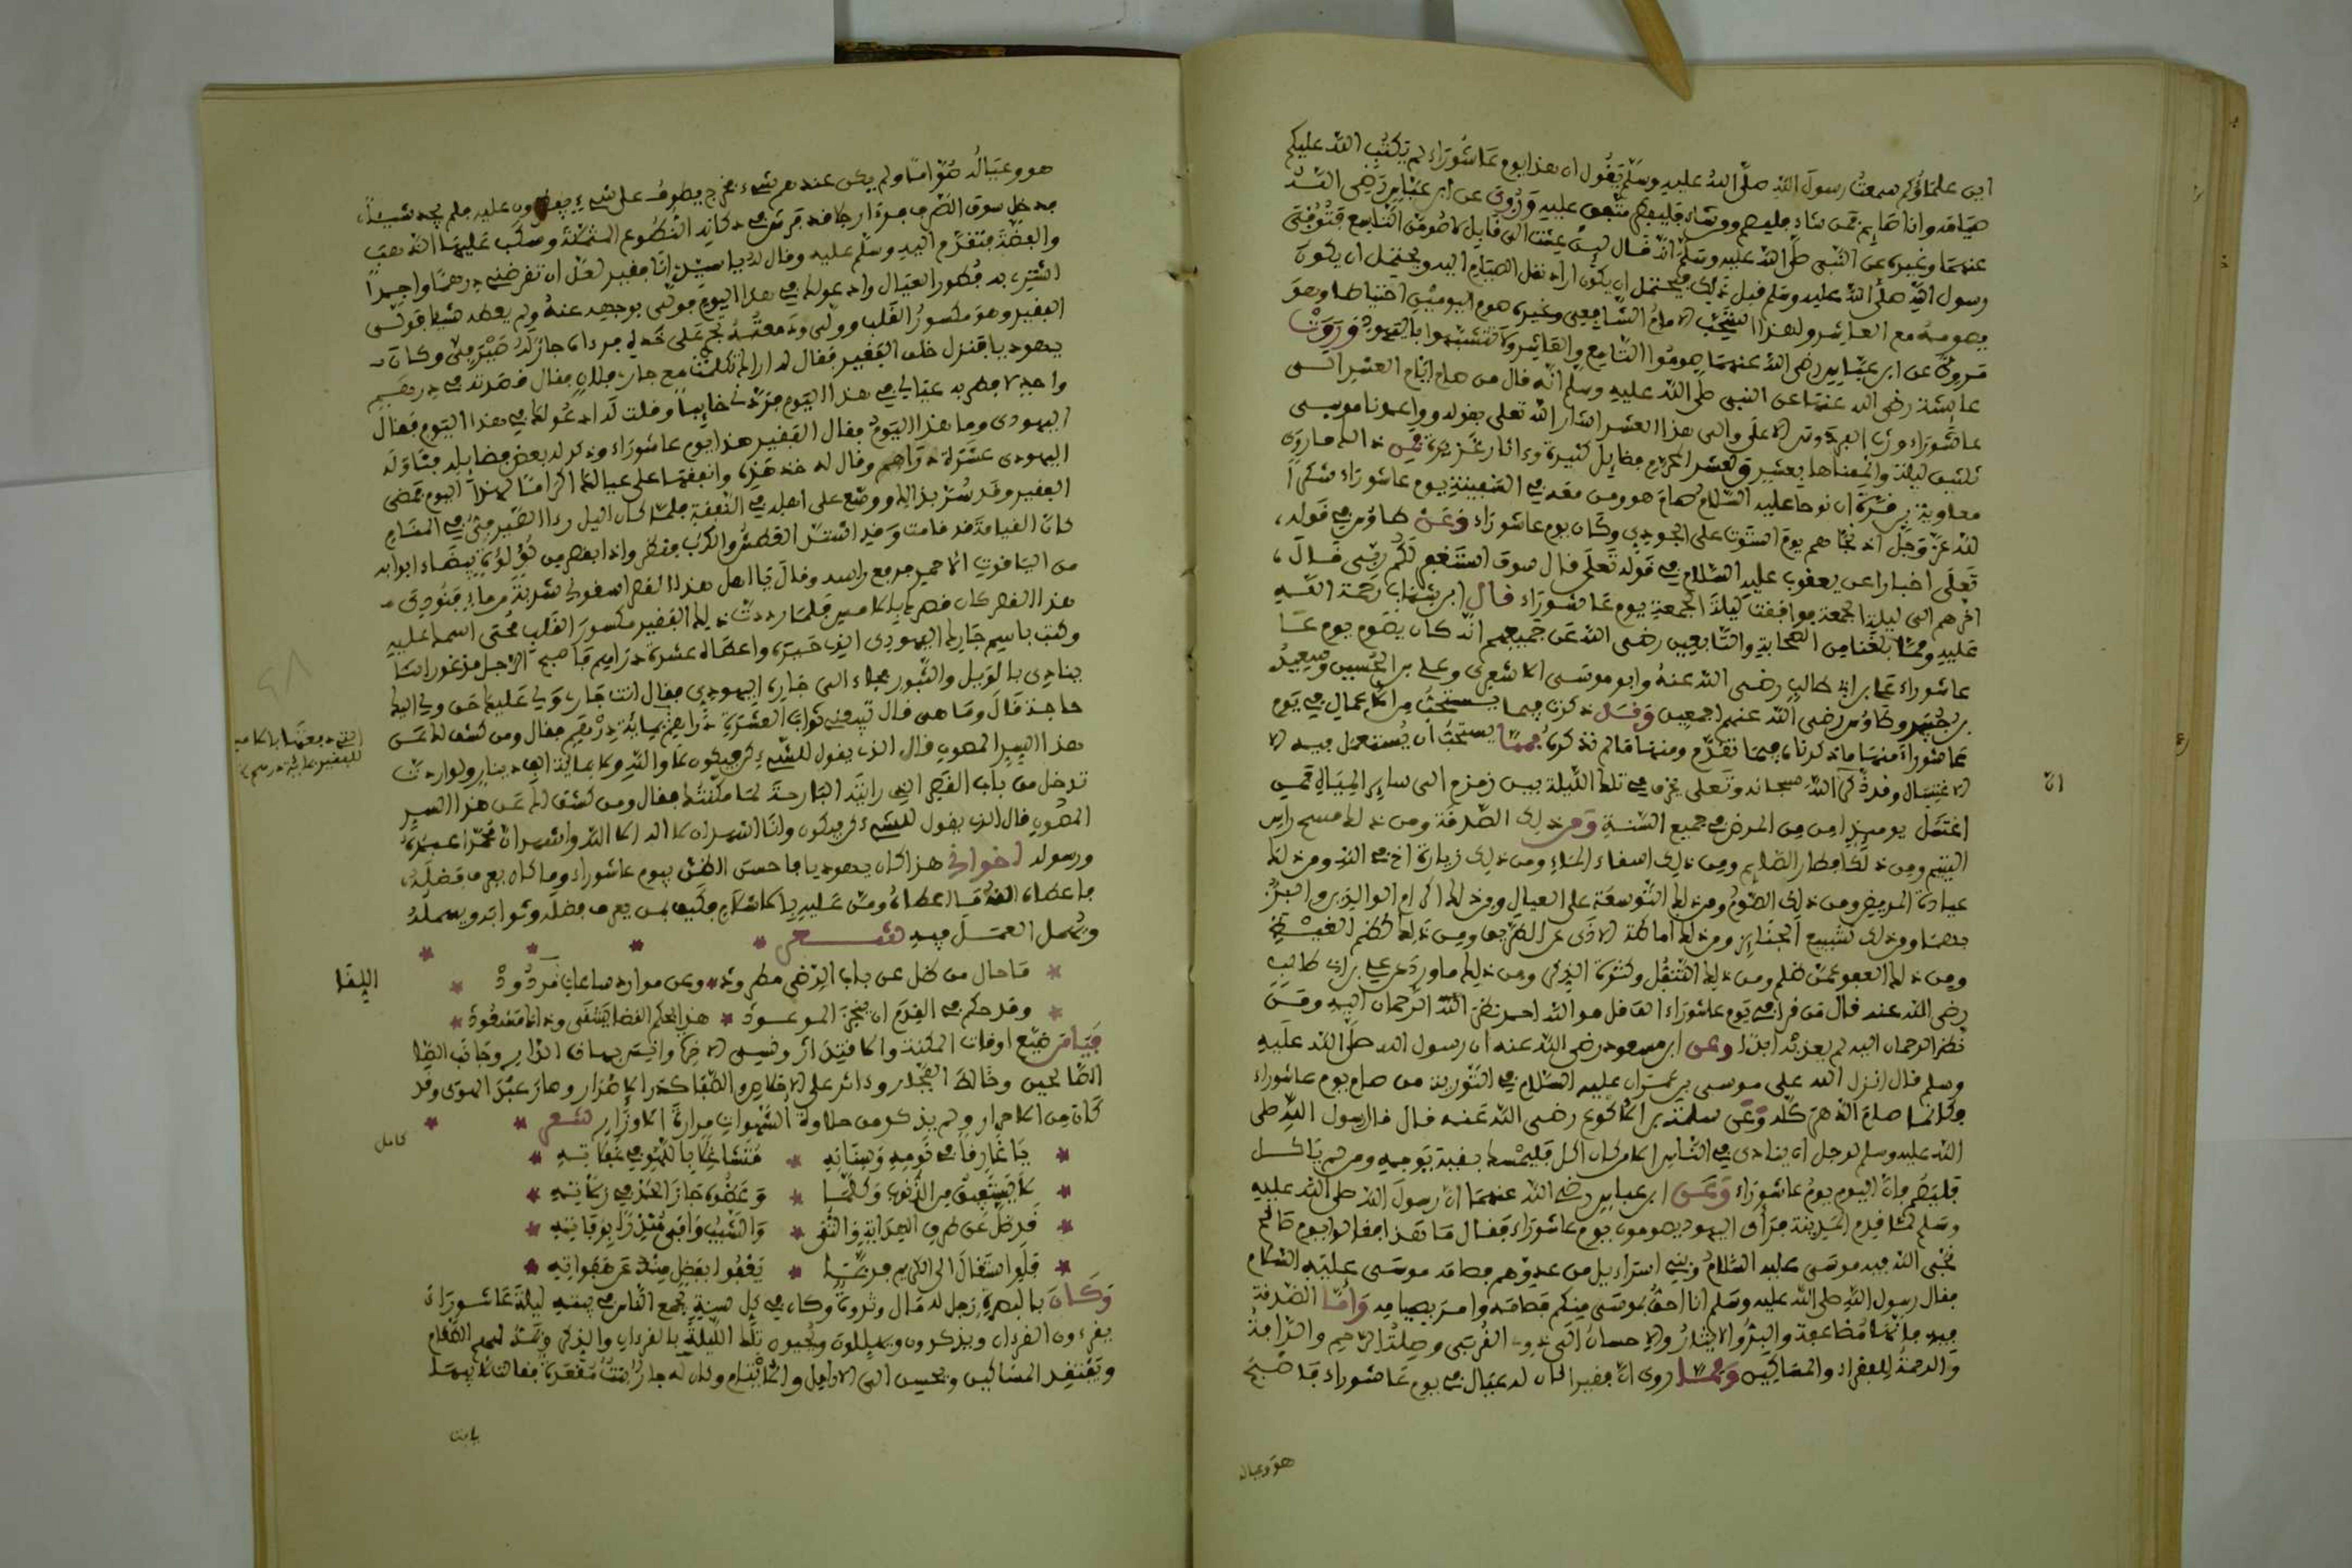 اين علماؤكم سمعت رسول الله صلى الله عليه وسلم يقول ان هذا يوم عاشوراء لم يكتب الله عليكم
صيامه وانا صايم فمن شاء فليصم ومن شاء فليفطر متفق عليه وروي عن ابن عباس رضي الله
عنهما وغيره عن النبي صلى الله عليه وسلم انه قال ليس عشت الى قابل لاصومن التاسع فتوفي
رسول الله صلى الله عليه وسلم قبل ذلك فيحتمل ان يكون اراد نقل الصيام اليه ويحتمل ان يكون
يصومه مع العاشر ولهذا استحب الامام الشافعي وغيره صوم اليومين احتياطا وهو
مروي عن ابن عباس رضي الله عنهما صوموا التاسع والعاشر ولا تتشبهوا باليهود وروت
عايشة رضي الله عنها عن النبي صلى الله عليه وسلم انه قال من صام ايام العشر الى
عاشوراء ورث الفردوس الاعلى والى هذا العشر اشار الله تعلى بقوله وواعدنا موسى
ثلثين ليلة واتممناها بعشر ولعشر المحرم فضايل كثيرة وءاثار غزيرة فمن ذلك ما روى
معاوية بن قرة ان نوحا عليه السلام صام هو ومن معه في السفينة يوم عاشوراء شكرا
لله عز وجل اذ نجاهم يوم استوت على الجودي وكان يوم عاشوراء وعن طاوس في قوله
تعلى اخبارا عن يعقوب عليه السلام في قوله تعلى قال سوف استغفر لكم ربي قال
اخرهم الى ليلة الجمعة فوافقت ليلة الجمعة يوم عاشوراء قال ابن شهاب رحمة الله
عليه ومما بلغنا من الصحابة والتابعين رضي الله عن جميعهم انه كان يصوم يوم عا
عاشوراء علي بن ابي طالب رضي الله عنه وابو موسى الاشعري وعلي بن الحسين وسعيد
بن جبير وطاوس رضي الله عنهم اجمعين وفسل ذكرت فيما يستحب من الاعمال في يوم
عاشوراء منها ما ذكرناه فيما تقدم ومنها ما لم نذكره فمما يستحب ان يستعمل فيه الا
الاغتسال وقد ذكر ان الله سبحانه وتعلى يخرق في تلك الليلة بين زمزم الى ساير المياه فمن
اغتسل يوميذ امن من المرض في جميع السنة ومن ذلك الصدقة ومن ذلك مسح راس
اليتيم ومن ذلك افطار الصايم ومن ذلك اسقاء الماء ومن ذلك زيارة اخ في الله ومن ذلك
عيادة المريض ومن ذلك الصوم ومن ذلك التوسعة على العيال ومن ذلك اكرام الوالدين والبر
بهما ومن ذلك تشييع الجنايز ومن ذلك اماطة الاذى عن الطريق ومن ذلك كظم الغيظ
ومن ذلك العفو عمن ظلم ومن ذلك التنفل وكثرة الذكر ومن ذلك ما ورد عن علي بن ابي طالب
رضي الله عنه قال من قرا في يوم عاشوراء الف قل هو الله احد نظر الله الرحمان اليه ومن
نظر الرحمان اليه لم يعذبه ابدا وعن ابن مسعود رضي الله عنه ان رسول الله صلى الله عليه
وسلم قال انزل الله على موسى بن عمران عليه السلام في التورية من صام يوم عاشوراء
فكانما صام الدهر كله وعن سلمة بن الاكوع رضي الله عنه قال قال رسول الله صلى
الله عليه وسلم لرجل ان ينادي في الناس الا من كان اكل فليمسك بقية يومه ومن لم ياكل
فليصم فان اليوم يوم عاشوراء وعن ابن عباس رضي الله عنهما ان رسول الله صلى الله عليه
وسلم لما قدم المدينة فراى اليهود يصومون يوم عاشوراء فقال ما هذا فقالوا يوم صالح
نجى الله فيه موسى عليه السلام وبني اسراءيل من عدوهم فصامه موسى عليه السلام
فقال رسول الله صلى الله عليه وسلم انا احق بموسى منكم فصامه وامر بصيامه واما الصدقة
فيه فانها مضاعفة والبر والايثار والاحسان الى ذوي القربى وصلة الرحم والرافة
والرحمة للفقراء والمساكين ومما روى ان فقيرا كان له عيال في يوم عاشوراء فاصبح
ان
هو وعياله
هو وعياله صواما ولم يكن عندهم شيء فخرج يطوف على شيء يفطرون عليه فلم يجد شيئا
فدخل سوق الصرف فمرة
والفضة فتقدم اليه وسلم عليه وقال له يا سيدي انا فقير لعل ان تقرضني درهما واحدا
اشتري به فطور العيال وادعو لك في هذا اليوم فولى بوجهه عنه ولم يعطه شيئا فولى
الفقير وهو مكسور القلب وولى ودمعته تجري على خده فرءاه جار له صيرفي وكان
يهوديا فنزل خلف الفقير فقال له اراك تكلمت مع جاري فلان فقال قصدته في درهم
واحد لافطر به عيالي في هذا اليوم فردني خايبا وقلت له ادعو لك في هذا اليوم فقال
اليهودي وما هذا اليوم فقال الفقير هذا يوم عاشوراء وذكر له بعض فضايله فناوله
اليهودي عشرة دراهم وقال له خذ هذه وانفقها على عيالك اكراما لهذا اليوم فمضى
الفقير وقد سر بذلك ووسع على اهله في النفقة فلما كان اليل رءا الصيرفي في المنام
كان القيامة قد قامت وقد اشتد العطش والكرب فنظر واذا بقصر من لؤلؤة بيضاء ابوابه
من الياقوت الاحمر فرفع راسه وقال يا اهل هذا القصر اسقوني شربة من ماء فنودي
هذا القصر كان قصرك بالامس فلما رددت ذلك الفقير مكسور القلب محي اسمك عليه
وكتب باسم جارك اليهودي الذي جبره واعطاه عشرة دراهم فاصبح الرجل مذعورا
ينادي بالويل والثبور فجاء الى جاره اليهودي فقال انت جاري ولي عليك حق ولي اليك
حاجة قال وما هي قال تبيعني ثواب العشرة دراهم بماية درهم فقال ومن كشف لك عن
هذا السر المصون قال الذي يقول للشيء كن فيكون فقال والله ولا بماية الف دينار ولو اردت
تدخل من باب القصر الذي رايته البارحة لما مكنتك فقال ومن كشف لك عن هذا السر
المصون قال الذي يقول للشيء كن فيكون وانا اشهد ان لا اله الا الله واشهد ان محمدا عبده
ورسوله اخواني هذا كان يهوديا فاحسن الظن بيوم عاشوراء وما كان يعرف فضله
فاعطاه الله ما اعطاه ومن عليه بالاسلام فكيف بمن يعرف فضله وثوابه ويسمله
ويهمل العمل فيه شعر
ما حال من ظل عن باب الرضى مطرود وعن موارد ساعات مردود
اللقا
وقد حكم في القدم ان ينجز الموعود هذا بحكم القضا يشقى وذا مسعود
فيا من ضيع اوقات
الصالحين وخالط
كان من الاحرار ولم يذكر من حلاوة الشهوات مرارة الاوزار شعر
كامل
يا غارقا في نومه وسناته متشاغلا باللهو في غفلاته
لا يستفيق من الذنوب وكلما
قد ظل عن طرق الهداية والتقى والشيب وافى منذرا بوفاته
فلو استقال الى الكريم يعفو بفضل منه عن هفواته
وكان بالبصرة رجل له مال وثروة وكان في كل سنة يجمع الناس في بيته ليلة عاشوراء
يقرءون القرءان ويذكرون ويهللون ويحيون تلك الليلة بالقرءان والذكر ويمد لهم الطعام
ويفتقد المساكين ويحسن الى الارامل والايتام وكان له جار له بنت مقعدة فقالت لابيها
يا ابت